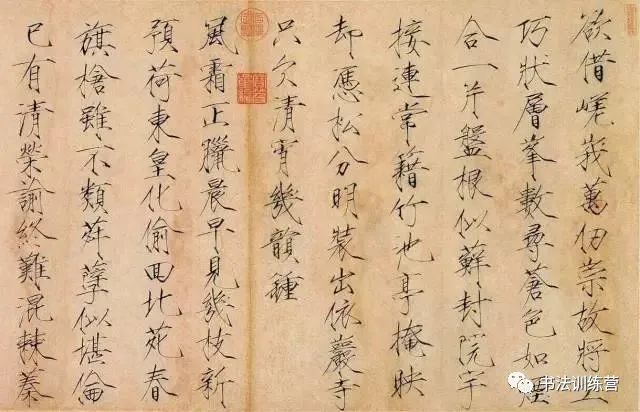 欲借嵯峩萬仞崇故將工
巧狀層峯數尋蒼色如煙
合一片盤根似蘚封院宇
接連常藉竹池亭掩映
却憑松分明裝出依巖寺
只欠清宵幾韻鍾
風霜正臘晨早見幾枝新
預荷東皇化偷回北苑春
旗槍雖不類荈孽似堪倫
已有清榮諭終難混棘蓁
书法训练营